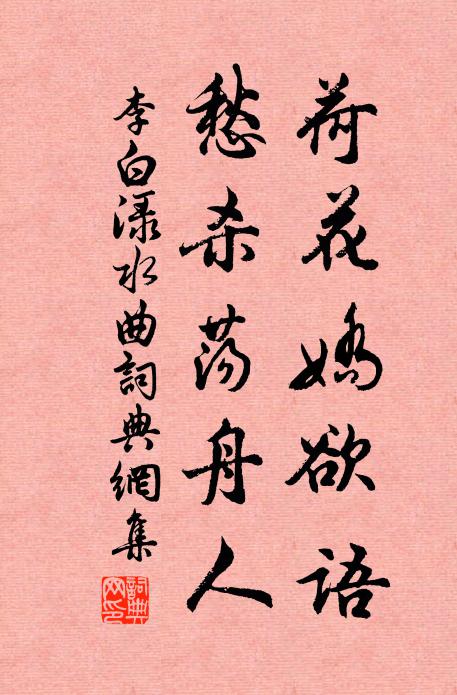 荷花嬌欲語
愁杀荡舟人
李白渌水曲詞典網集
詞典网印